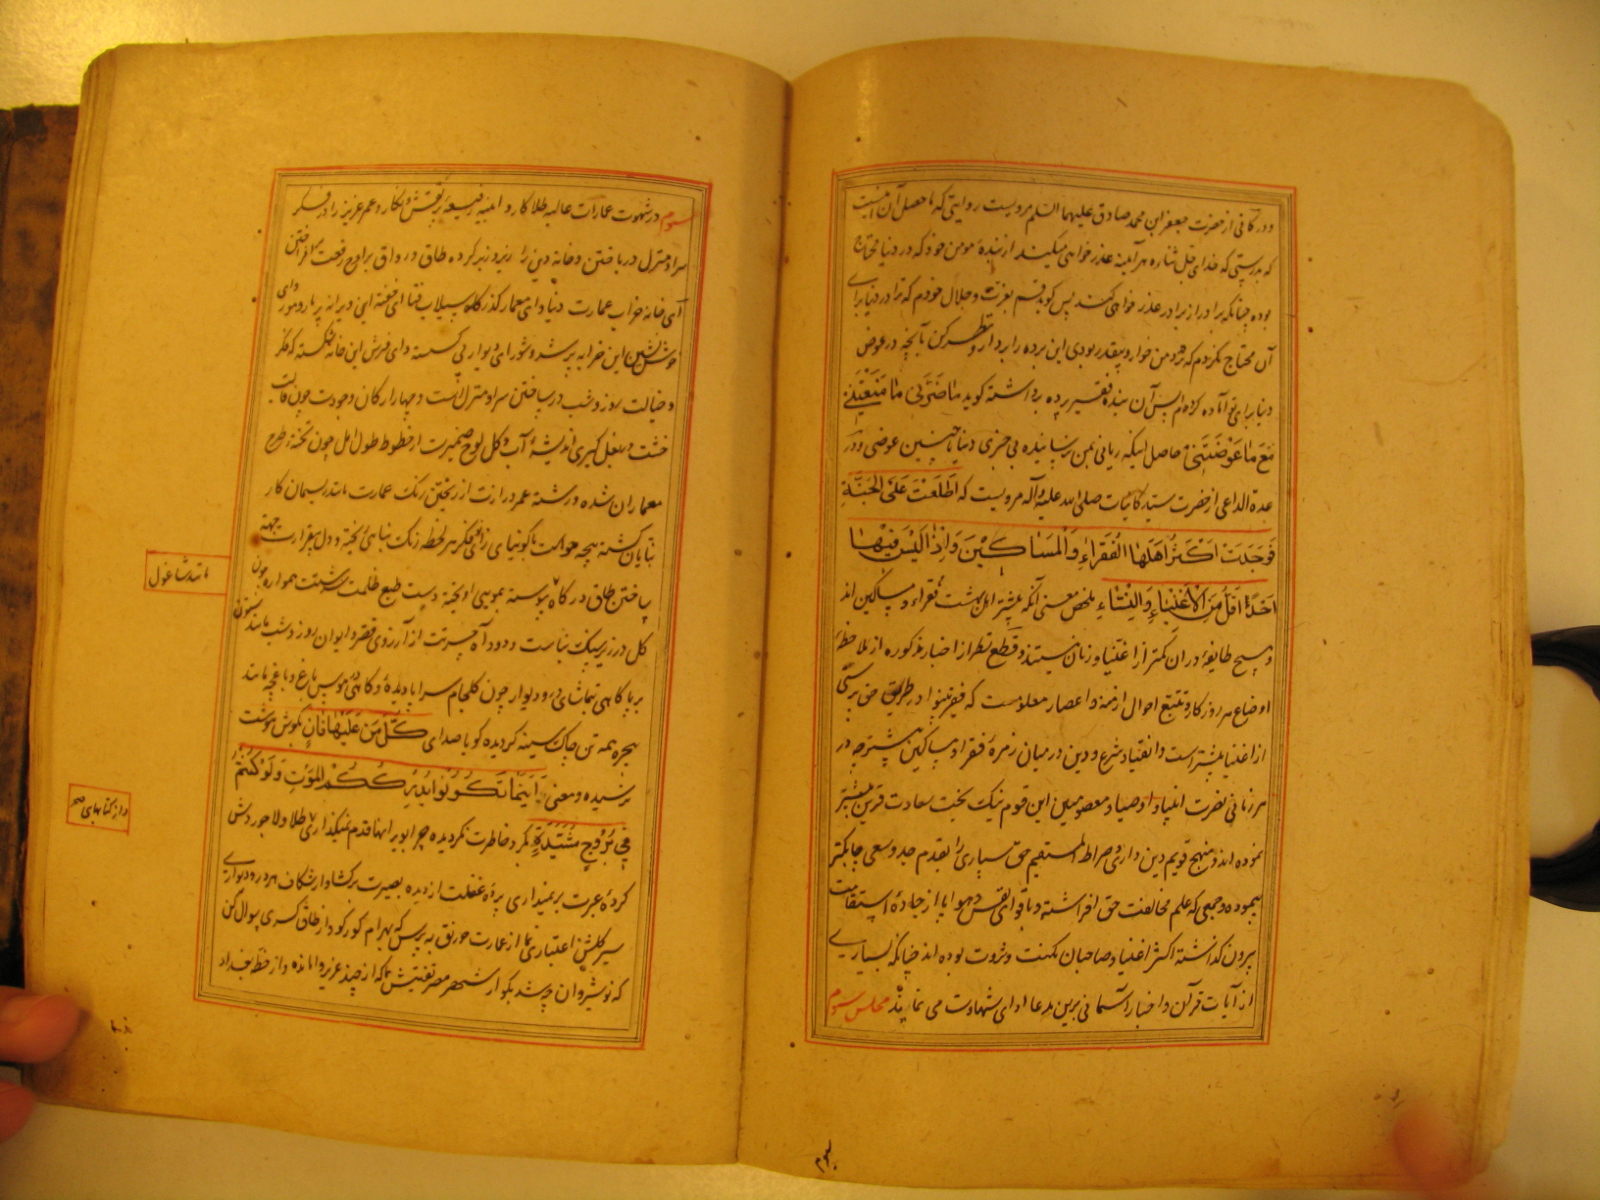 و در کافی از حضرت جعفر ابن محمد صادق علیهما السلم مرویست روایتی که ماحصل آن اینست
که بدرستی که خدای جل ثناءه هر آینه عذر خواهی میکند از بندهٔ مومن خود که در دنیا محتاج
بوده چنانکه برادر از برادر عذر خواهی کند پس کوید قسم بعزت و جلال خودم که ترا در دنیا برای
آن محتاج نکردم که نزد من خوار و بیقدر بودی این پرده را بردار و نظر کن بآنچه در عوض
دنیا برای تو آماده کرده ام پس آن بندهٔ فقیر پرده برداشته کوید ما ضَرَّنی ما مَنَعْتَنی
مَعَ ما عَوَّضْتَنی حاصل اینکه زیانی بمن نرسانیده بی چیزی دنیا با چنین عوضی و در
عدة الداعی از حضرت سید کاینات صلی الله علیه و آله مرویست که اطَّلَعْتُ عَلَی الجَنَّةِ
فَوَجَدْتُ اَکْثَرَ اَهْلِهَا الْفُقَراءِ وَالْمَساکینَ وَاِذا لَیْسَ فیها
اَحَدٌ اَقَلَّ مِنَ الاَغْنِیاءِ وَالنِّساءِ ملخص معنی آنکه بیشتر اهل بهشت فقراء و مساکین اند
و هیچ طایفه در آن کمتر از اغنیا و زنان نیستند و قطع نظر از اخبار مذکوره از ملاحظهٔ
اوضاع هر روزکار و تتبع احوال ازمنه و اعصار معلومست که فقیر تهیدست در طریق حق پرستی
از اغنیا بیشتر است و انقیاد شرع و دین در میان زمرهٔ فقرا و مساکین بیشتر چه در
هر زمانی نصرت انبیا و اوصیاء معصومین این قوم نیک بخت سعادت قرین بیشتر
نموده اند و منهج قویم دین داری و صراط المستقیم حق سپاری را بقدم جد و سعی چابکتر
پیموده و جمعی که علم مخالفت حق افراشته و باقوای نفس و هوا پا از جادهٔ استقامت
بیرون گذاشته اکثر اغنیا و صاحبان مکنت و ثروت بوده اند چنانکه بسیاری
از آیات قرآن و اخبار آسمانی برین مدعا ادای شهادت می نمایند مجلس سوم
سوم در شهوت عمارات عالیه طلا کار و ابنیه رفیعه پر نقش و نکار و عمر عزیز را در فکر
سرا و منزل در باختن و خانه دین را زیر و زبر کرده طاق و رواق بر اوج رفعت بر افراختن
ای خانه خراب عمارت دنیا و ای معمار گذرگاه سیلاب فنا ای خفته این ویرانه پر مار و مور و ای
خوش نشین این خرابه پر شر و شور ای دیوار پی کسسته و ای فرش این خانه شکسته که فکر
و خیالت روز و شب در ساختن سرا و منزل است و چهار ارکان وجودت چون قالب
خشت در بغل کیری اندیشهٔ آب و کل لوح ضمیرت از خطوط طول امل چون تختهٔ طرح
معماران شده و رشته عمر درازت از ریختن رنک عمارت مانند ریسمان کار
بنایان کشته
پیوسته بمویی آویخته دست طبع
کل در زیر سنک بناست و دود آه حسرتت از آرزوی قصر و ایوان روز و شب مانند ستون
بر پا کاهی بتماشای در و دیوار چون کلجام سراپا دیدهٔ و کاهی در هوس باغ و باغچه مانند
پنجره همه تن چاک سینه کردیده کویا صدای کُلُّ مَنْ عَلَیْها فانٍ بکوش هوشت
نرسیده و معنی اَیْنَما تَکُونُوا یُدْرِکْکُمُ المَوْتُ وَلَوْ کُنْتُمْ
فی بُرُوجٍ مُشَیَّدَةٍ کرد خاطرت نکردیده چرا بویرانها قدم نمیگذاری طلا و لاجوردش
کردهٔ عبرت بر نمیداری پردهٔ غفلت از دیده بصیرت برکشا و از شکاف هر در و دیواری
سیر کلشن اعتباری نما از عمارت خورنق به پرس که بهرام کور کو و از طاق کسری سوال کن
که نوشیروان چه شد بکو از شهر مصر تفتیش نما که از چند عزیز وامانده و از خطهٔ بغداد
مانند شاغول
و از کتابهای
سوم